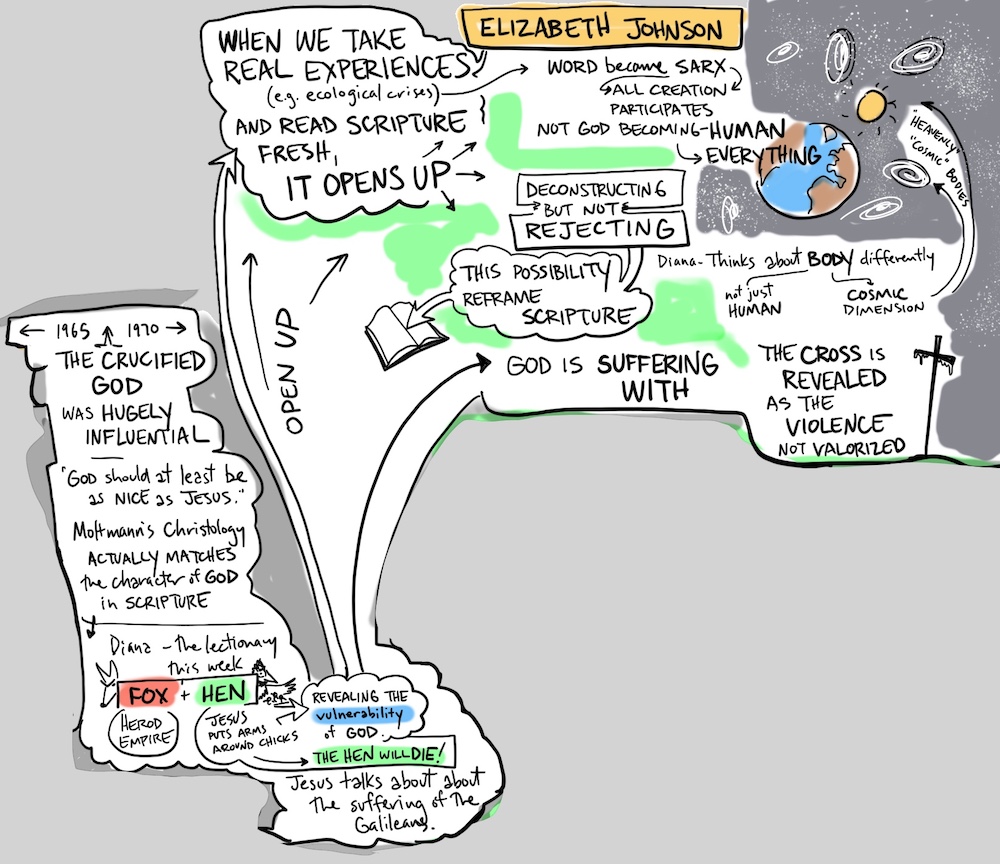 ELIZABETH JOHNSON
WHEN WE TAKE
REAL EXPERIENCES
(e.g. ecological crises)
AND READ SCRIPTURE
FRESH,
IT OPENS UP
WORD became SARX
ALL CREATION
PARTICIPATES
NOT GOD BECOMING-HUMAN
EVERYTHING
"HEAVENLY"
"COSMIC" BODIES
DECONSTRUCTING
BUT NOT
REJECTING
THIS POSSIBILITY
REFRAME
SCRIPTURE
Diana-Thinks about BODY differently
not just
HUMAN
COSMIC
DIMENSION
GOD IS SUFFERING
WITH
THE CROSS IS
REVEALED
AS THE
VIOLENCE
NOT VALORIZED
OPEN UP
← 1965 1970 →
THE CRUCIFIED
GOD
WAS HUGELY
INFLUENTIAL
"GOD should at least be
as NICE as JESUS."
Moltmann's Christology
ACTUALLY MATCHES
the character of GOD
in SCRIPTURE
Diana - the lectionary
this week
FOX + HEN
HEROD
EMPIRE
JESUS
PUTS ARMS
AROUND CHICKS
REVEALING THE
vulnerability
of GOD
THE HEN WILL DIE!
Jesus talks about about
the suffering of the
Galileans.